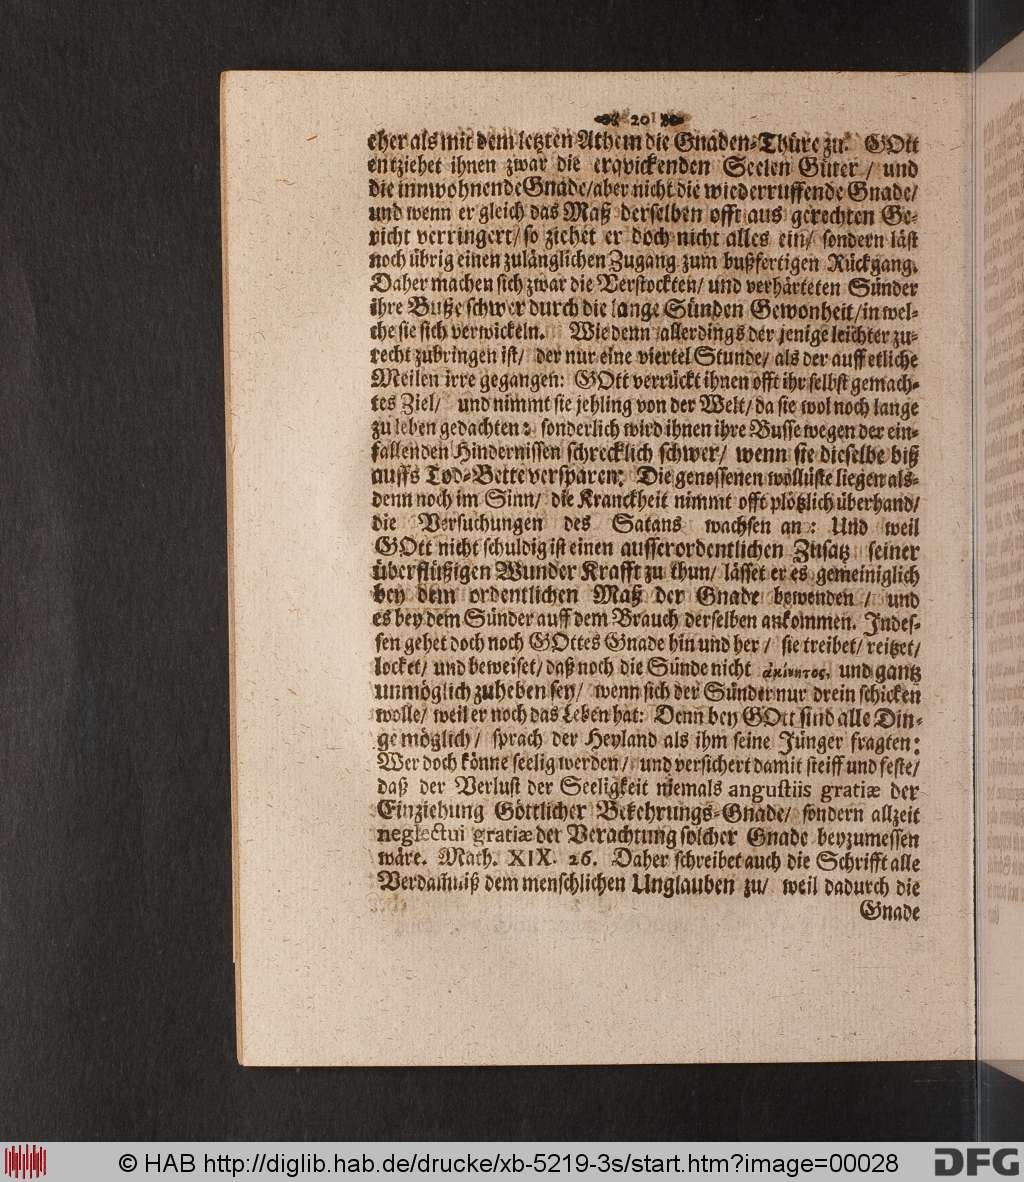 20
eher als mit dem letzten Athem die Gnaden-Thüre zu. GOtt
entziehet ihnen zwar die erqvickenden Seelen Güter / und
die innwohnende Gnade/ aber nicht die wiederruffende Gnade/
und wenn er gleich das Maß derselben offt aus gerechten Ge-
richt verringert/ so ziehet er doch nicht alles ein/ sondern läst
noch übrig einen zulänglichen Zugang zum bußfertigen Rückgang.
Daher machen sich zwar die Verstockten/ und verhärteten Sünder
ihre Buße schwer durch die lange Sünden Gewonheit/ in wel-
che sie sich verwickeln. Wie denn allerdings der jenige leichter zu-
recht zubringen ist/ der nur eine viertel Stunde/ als der auff etliche
Meilen irre gegangen: GOtt verrückt ihnen offt ihr selbst gemach-
tes Ziel/ und nimmt sie jehling von der Welt/ da sie wol noch lange
zu leben gedachten: sonderlich wird ihnen ihre Busse wegen der ein-
fallenden Hindernissen schrecklich schwer/ wenn sie dieselbe biß
auffs Tod-Bette versparen: Die genossenen wollüste liegen als-
denn noch im Sinn/ die Kranckheit nimmt offt plötzlich überhand/
die Versuchungen des Satans wachsen an: Und weil
GOtt nicht schuldig ist einen ausserordentlichen Zusatz seiner
überflüßigen Wunder Krafft zu thun/ lässet er es gemeiniglich
bey dem ordentlichen Maß der Gnade bewenden / und
es bey dem Sünder auff dem Brauch derselben ankommen. Indes-
sen gehet doch noch GOttes Gnade hin und her / sie treibet/ reitzet/
locket/ und beweiset/ daß noch die Sünde nicht ἀκίνητος, und gantz
unmöglich zuheben sey/ wenn sich der Sünder nur drein schicken
wolle/ weil er noch das Leben hat: Denn bey GOtt sind alle Din-
ge möglich/ sprach der Heyland als ihm seine Jünger fragten:
Wer doch könne seelig werden/ und versichert damit steiff und feste/
daß der Verlust der Seeligkeit niemals angustiis gratiæ der
Einziehung Göttlicher Bekehrungs-Gnade/ sondern allzeit
neglectui gratiæ der Verachtung solcher Gnade beyzumessen
wäre. Math. XIX. 26. Daher schreibet auch die Schrifft alle
Verdamniß dem menschlichen Unglauben zu/ weil dadurch die
Gnade
© HAB http://diglib.hab.de/drucke/xb-5219-3s/start.htm?image=00028
DFG